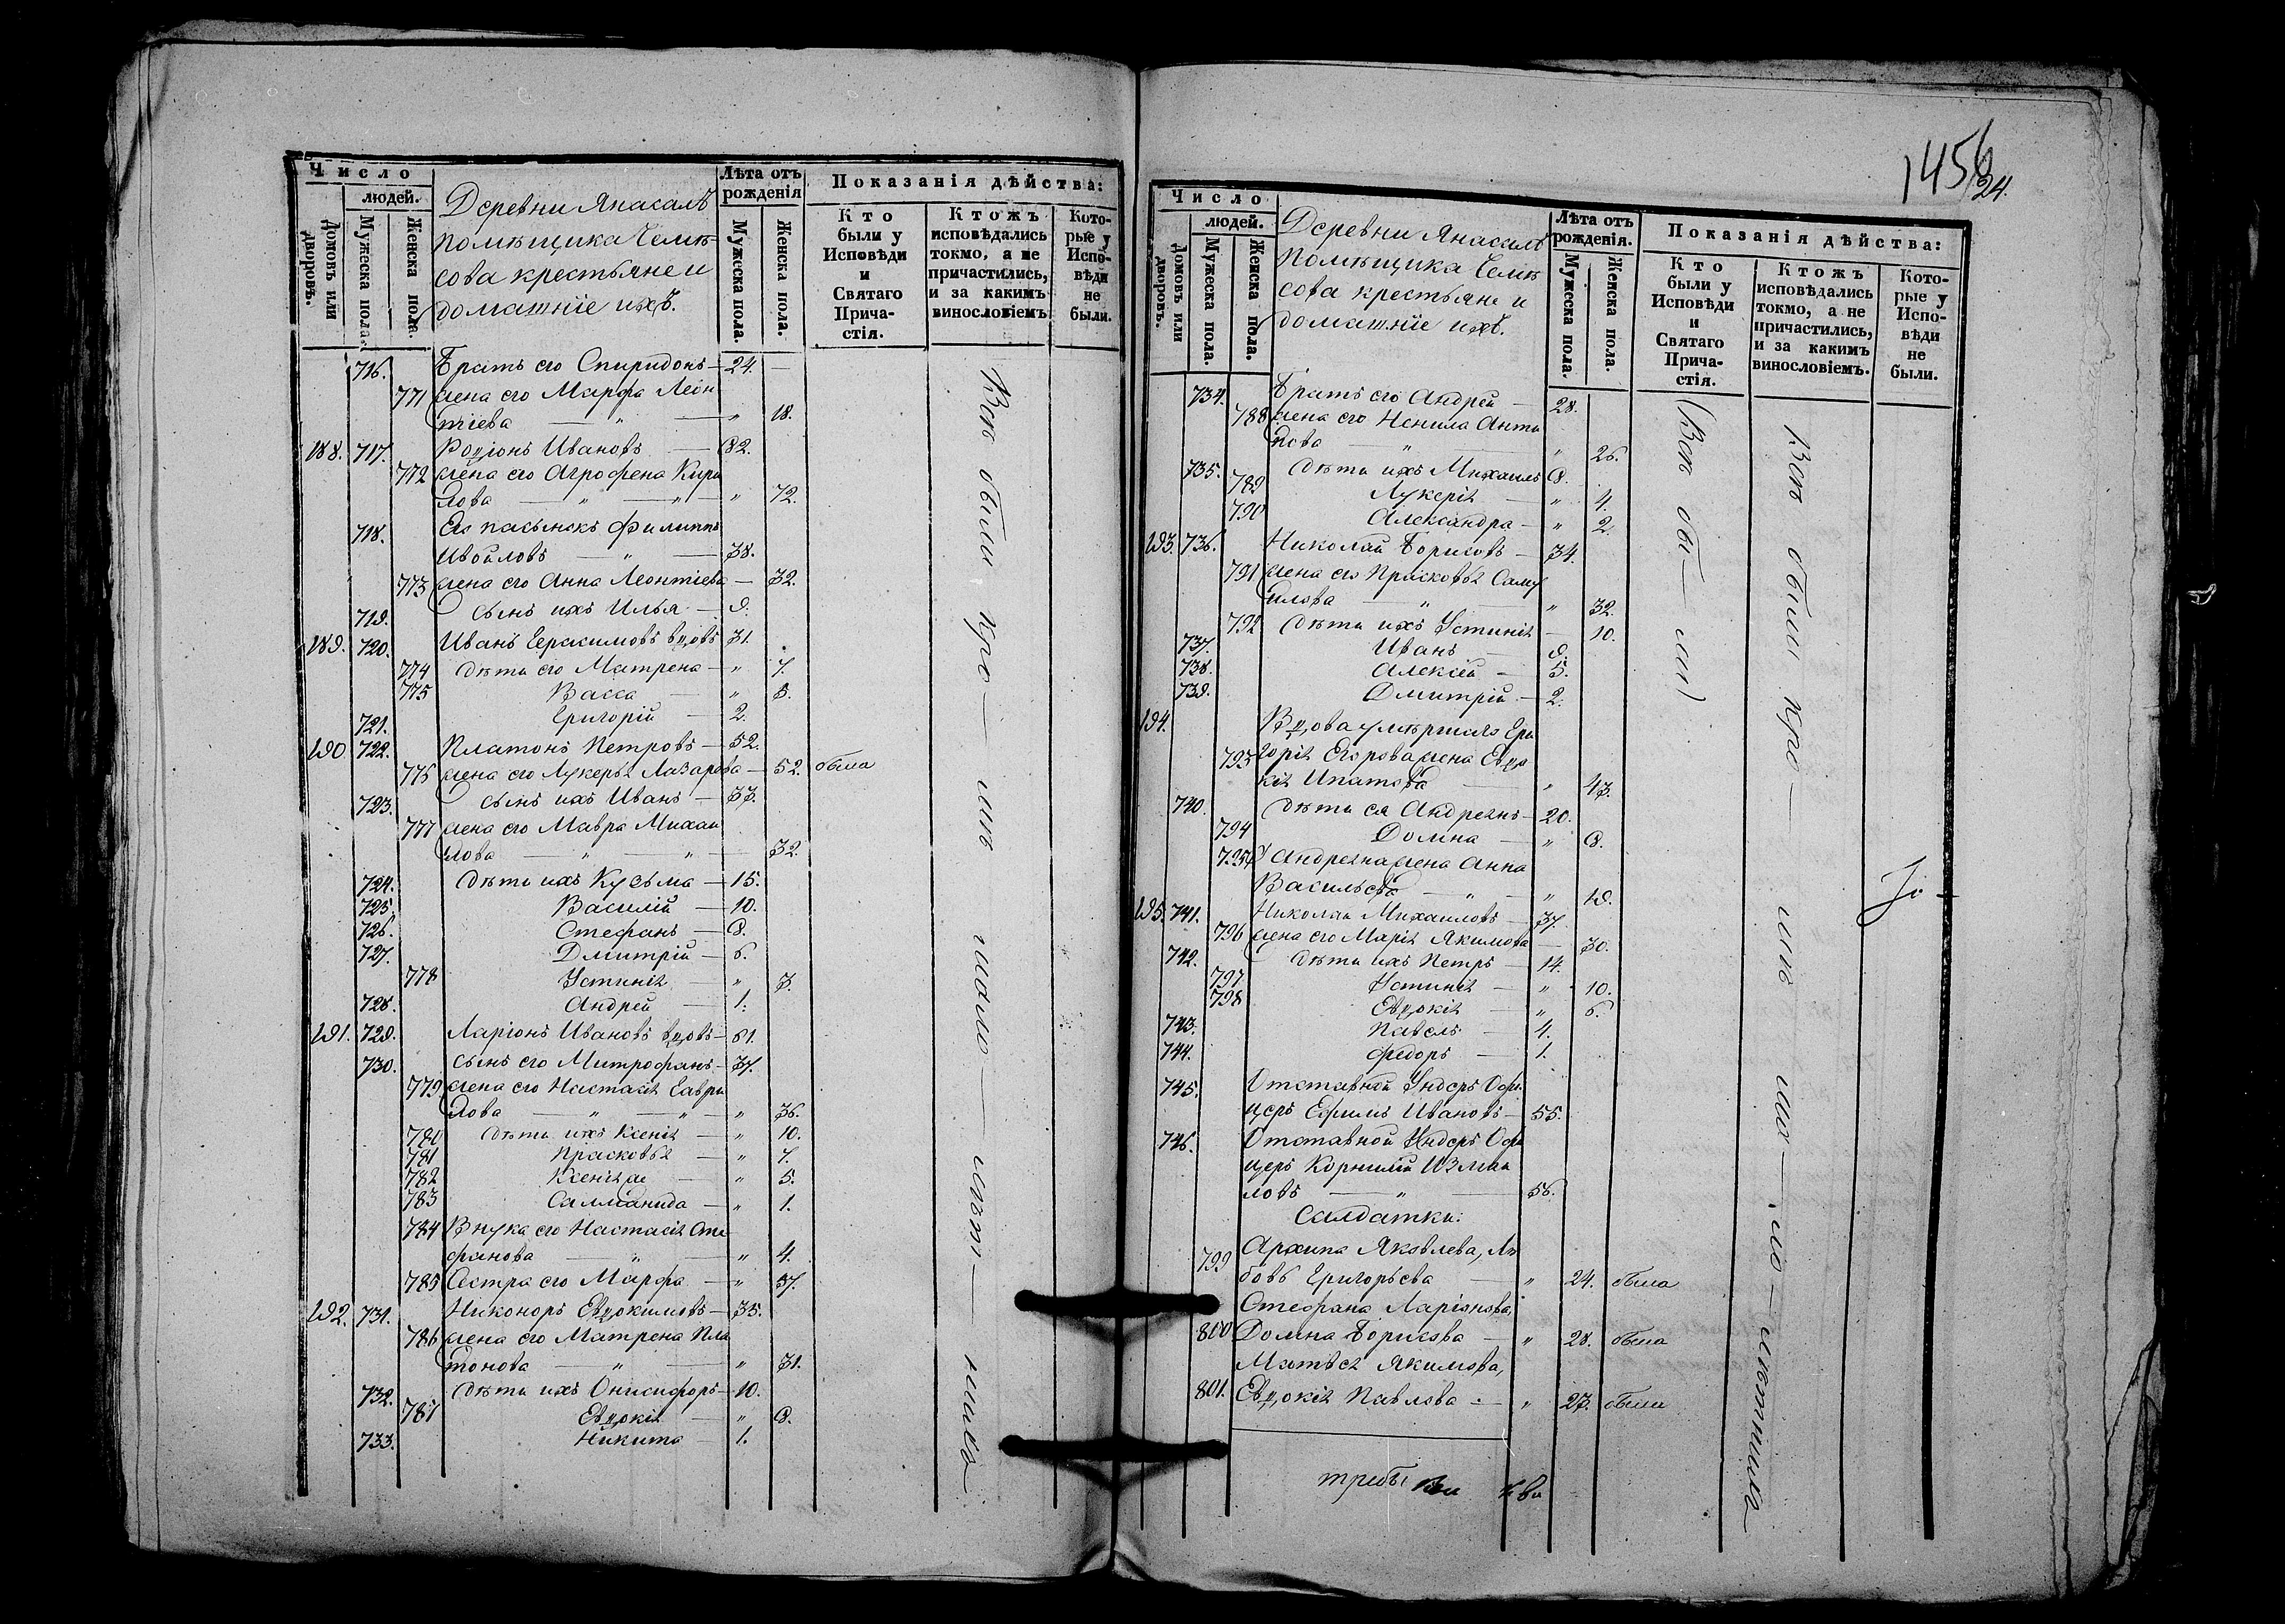 Число
людей.
Домовъ или дворовъ.
Мужеска пола.
Женска пола.
Деревни Янасалъ
помѣщика Челѣ
сова крестьяне и
домашніе ихъ.
Лѣта отъ
рожденія
Мужеска пола.
Женска пола.
Показанія дѣйства:
Кто
были у
Исповѣди
и
Святаго
Прича-
стія.
Ктожъ
исповѣдались
токмо, а не
причастились,
и за какимъ
винословіемъ
Кото-
рые у
Испо-
вѣди
не
были.
716. Братъ его Спиридонъ — 24. —
771 жена его Марфа Леон
тіева — " — " 18.
188. 717. Родіонъ Ивановъ — 82.
772 жена его Агрофена Кири
лова — " — " — " 72.
718. Его пасынокъ Филиппъ
Ивойловъ — " — 38.
773 жена его Анна Леонтіева — 32.
719. сынъ ихъ Илья — 9.
189. 720. Иванъ Герасимовъ вдовъ 31.
774 дѣти его Матрена — " 7.
775 Васса — " 3.
721. Григорій — 2.
190 722. Платонъ Петровъ — 52.
776 жена его Лукерья Лазарева — 52. была
723. сынъ ихъ Иванъ — 33.
777 жена его Мавра Михаи
лова — " — " — 32.
724. дѣти ихъ Кузьма — 15.
725. Василій — 10.
726. Стефанъ — 8.
727. Дмитрій — 6.
778 Устинія — " 3.
728. Андрей — 1.
191. 729. Ларіонъ Ивановъ вдовъ — 61.
730. сынъ его Митрофанъ — 37.
779 жена его Настасія Гаври
лова — " — " — " 36.
780 дѣти ихъ Ксенія — " 10.
781 Прасковья — " 7.
782 Ксенія же — " 5.
783 Салманида — " 1.
784 Внука его Настасія Сте
фанова — " — " 4.
785 Сестра его Марфа — " 37.
192. 731. Никоноръ Евдокимовъ — 35.
786 жена его Матрена Пла
тонова — " — " 31.
732. дѣти ихъ Онисифоръ — 10.
787 Евдокія — " 8.
733. Никита — 1.
Всѣ были
145
24.
Число
людей.
Домовъ или дворовъ.
Мужеска пола.
Женска пола.
Деревни Янасалъ
Помѣщика Челѣ
сова крестьяне и
домашніе ихъ.
Лѣта отъ
рожденія.
Мужеска пола.
Женска пола.
Показанія дѣйства:
Кто
были у
Исповѣди
и
Святаго
Прича-
стія.
Ктожъ
исповѣдались
токмо, а не
причастились,
и за какимъ
винословіемъ.
Кото-
рые у
Испо-
вѣди
не
были.
734. Братъ его Андрей — 28.
788 жена его Ненила Анти
пова — " — " 26.
735. дѣти ихъ Михаилъ 8.
789 Лукерія — " 4.
790 Александра — " 2.
193. 736. Николай Борисовъ — 34.
791 жена его Прасковья Саму
илова — " — " 32.
792 дѣти ихъ Устинія — 10.
737. Иванъ — 9.
738. Алексій — 5.
739. Дмитрій — 2.
194. Вдова умершаго Гри
793 горія Егорова жена Евдо
кія Ипатова — " 43.
740. дѣти ея Андреянъ — 20.
794 Домна — " 8.
795 У Андреяна жена Анна
Васильева — " — " 19.
195. 741. Николай Михаиловъ — 37.
796 жена его Марія Якимова — 30.
742. дѣти ихъ Петръ — 14.
797 Устинія — " 10.
798 Евдокія — " 6.
743. Павелъ — 4.
744. Федоръ — 1.
745. Отставной Ундеръ Офи
церъ Ефимъ Ивановъ — 55.
746. Отставной Ундеръ Офи
церъ Корнилій Измаи
ловъ — " — 56.
Салдатки:
Архипа Яковлева, Лю
799 бовь Григорьева — " 24. была
Стефана Ларіонова,
800 Домна Борисова — " 28. была
Матвея Якимова,
801. Евдокія Павлова — " 27. была
(Всѣ бы — ли)
Всѣ были